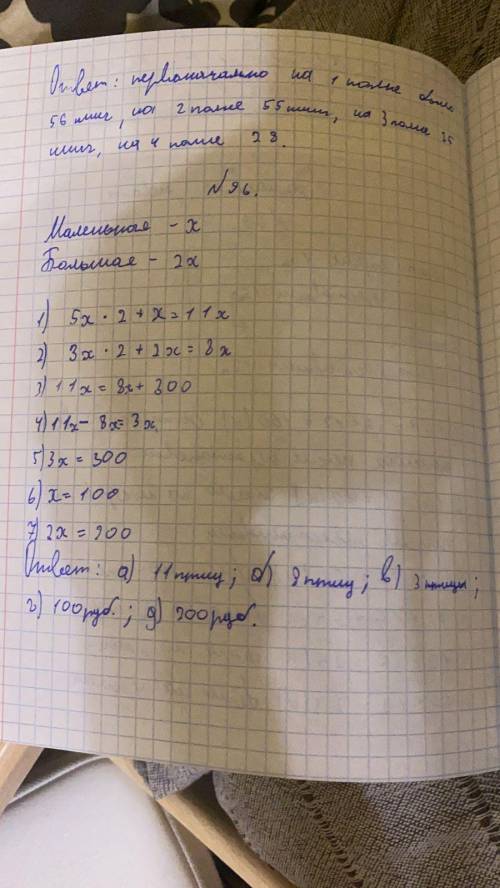 Ответ: первоначально на 1 полке было
56 книг, на 2 полке 55 книг, на 3 полке 35
книг, на 4 полке 28.
№96.
Маленькая - х
Большая - 2х
1) 5х · 2 + х = 11х
2) 3х · 2 + 2х = 8х
3) 11х = 8х + 300
4) 11х - 8х = 3х
5) 3х = 300
6) х = 100
7) 2х = 200
Ответ: а) 11 птиц; б) 8 птиц; в) 3 птицы;
г) 100 руб.; д) 200 руб.